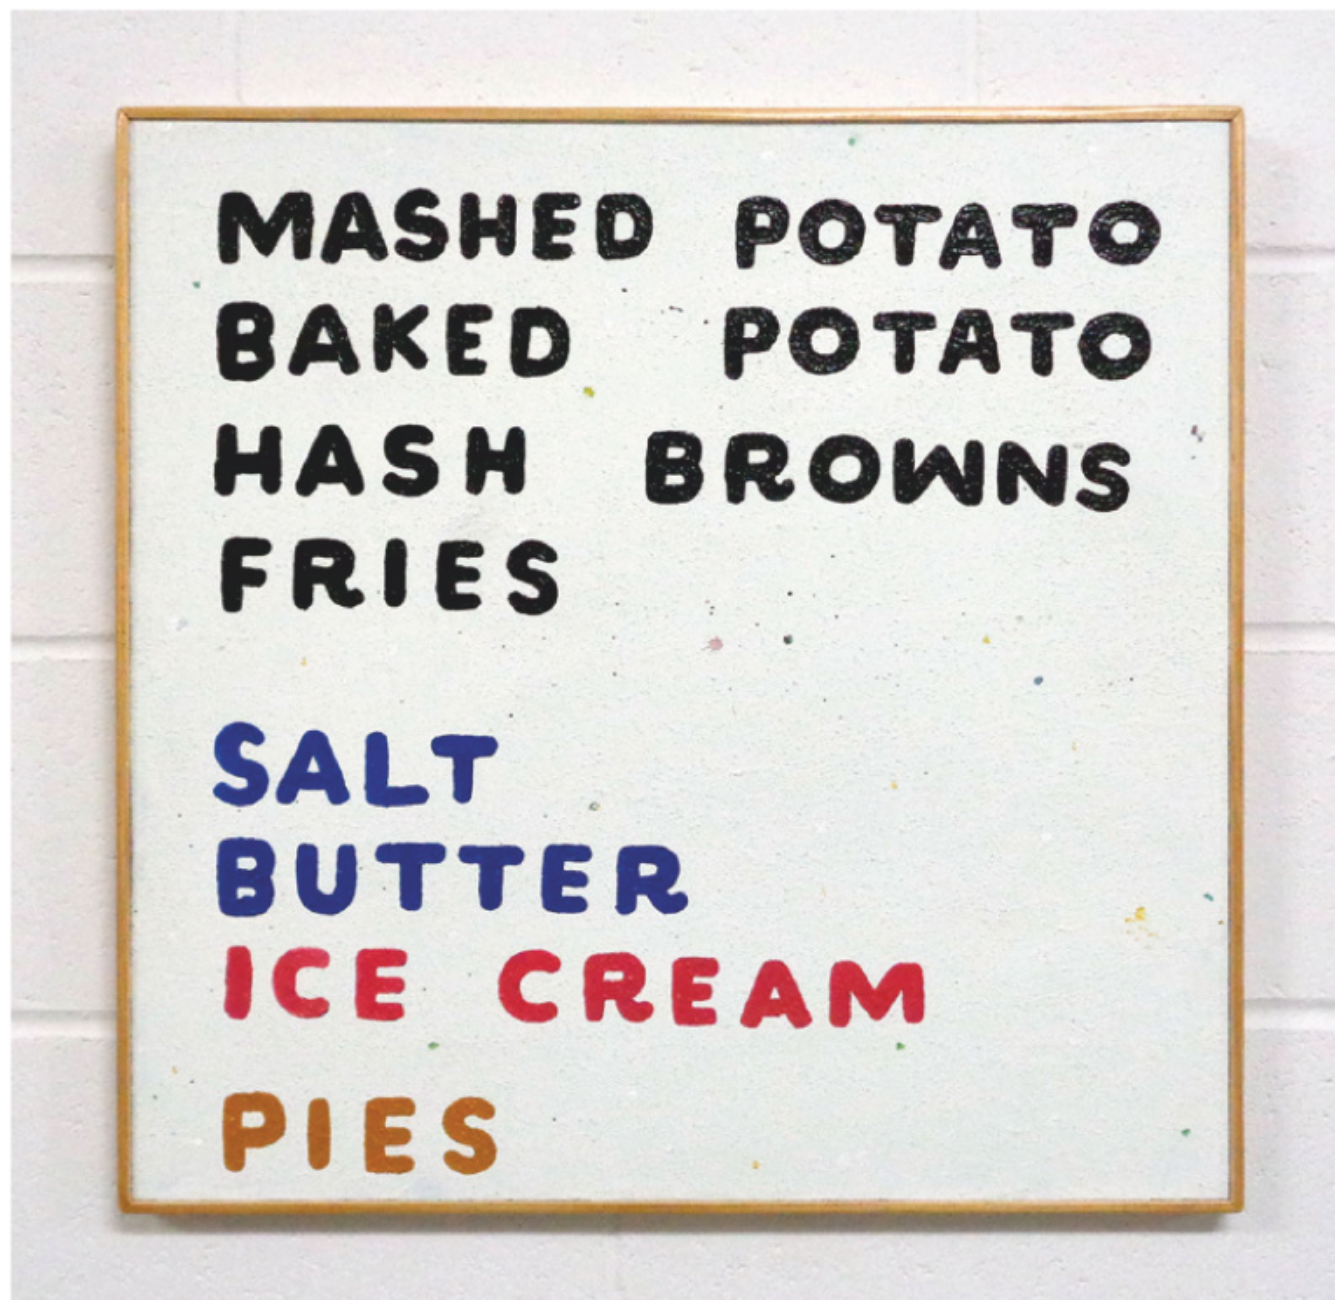 MASHED POTATO
BAKED POTATO
HASH BROWNS
FRIES
SALT
BUTTER
ICE CREAM
PIES